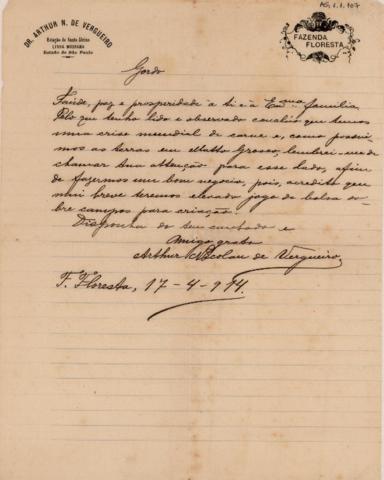 AG.1.1.107
DR. ARTHUR N. DE VERGUEIRO
Estação de Santa
LINHA MOGYANA
Estado de São Paulo
FAZENDA
FLORESTA
Gordo
Saúde, paz e prosperidade a ti e a Exma familia.
Pelo que tenho lido e observado concluo que temos
uma crise mundial de carne e, como possui-
mos as terras em Matto Grosso, lembrei-me de
chamar tua attenção para esse lado, afim
de fazermos um bom negocio, pois, acredito que
mui breve teremos elevado jogo de bolsa so-
bre campos para criação.
Disponha do seu cunhado e
Amigo grato
Arthur Nicolau de Vergueiro
F. Floresta, 17-4-914.